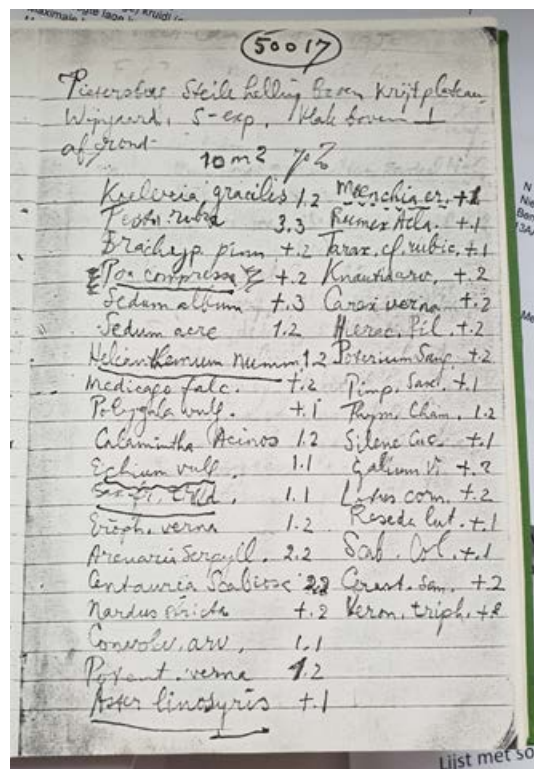 50017
Pietersberg Steile helling boven Krijtplateau
Wijngaard, S-exp, Vlak boven
afgrond
10 m2 70%
Koeleria gracilis 1.2
Festu. rubra 3.3
Brachyp. pinn +.2
Poa compressa +.2
Sedum album +.3
Sedum acre 1.2
Helianthemum numm. 1.2
Medicago falc. +.2
Polygala vulg. +.1
Calamintha Acinos 1.2
Echium vulg. 1.1
1.1
Eroph. verna 1.2
Arenaria Serpyll. 2.2
Centauria Scabiosa 2.2
Nardus stricta +.2
Convolv. arv. 1.1
Potent. verna 1.2
Aster linosyris +.1
Moenchia er. +.2
Rumex Atla. +.1
Tarax. cf. rubic. +.1
Knautia arv. +.2
Carex verna +.2
Hierac. Pil. +.2
Poterium Sang. +.2
Pimp. Sax. +.1
Thym. Cham. 1.2
Silene Cuc. +.1
Galium V. +.2
Lotus corn. +.2
Reseda lut. +.1
Scab. Col. +.1
Cerast. sem. +.2
Veron. triph. +.2
Lijst met so